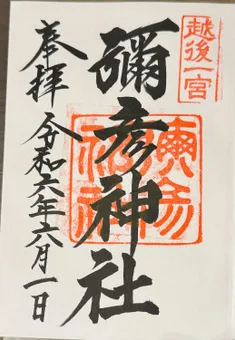 越後一宮
彌彦神社
奉拝 令和六年六月一日